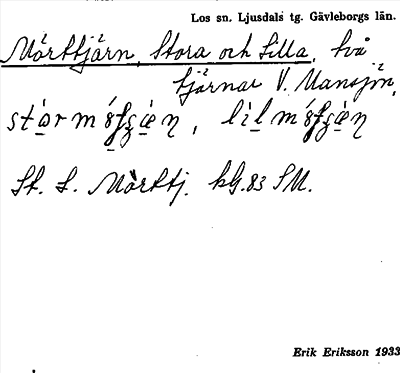 Los sn. Ljusdals tg. Gävleborgs län.
Mörttjärn, Stora och Lilla, två
tjärnar V. Mansjön,
St. L. Mörttj. kG.83 SM.
Erik Eriksson 1933